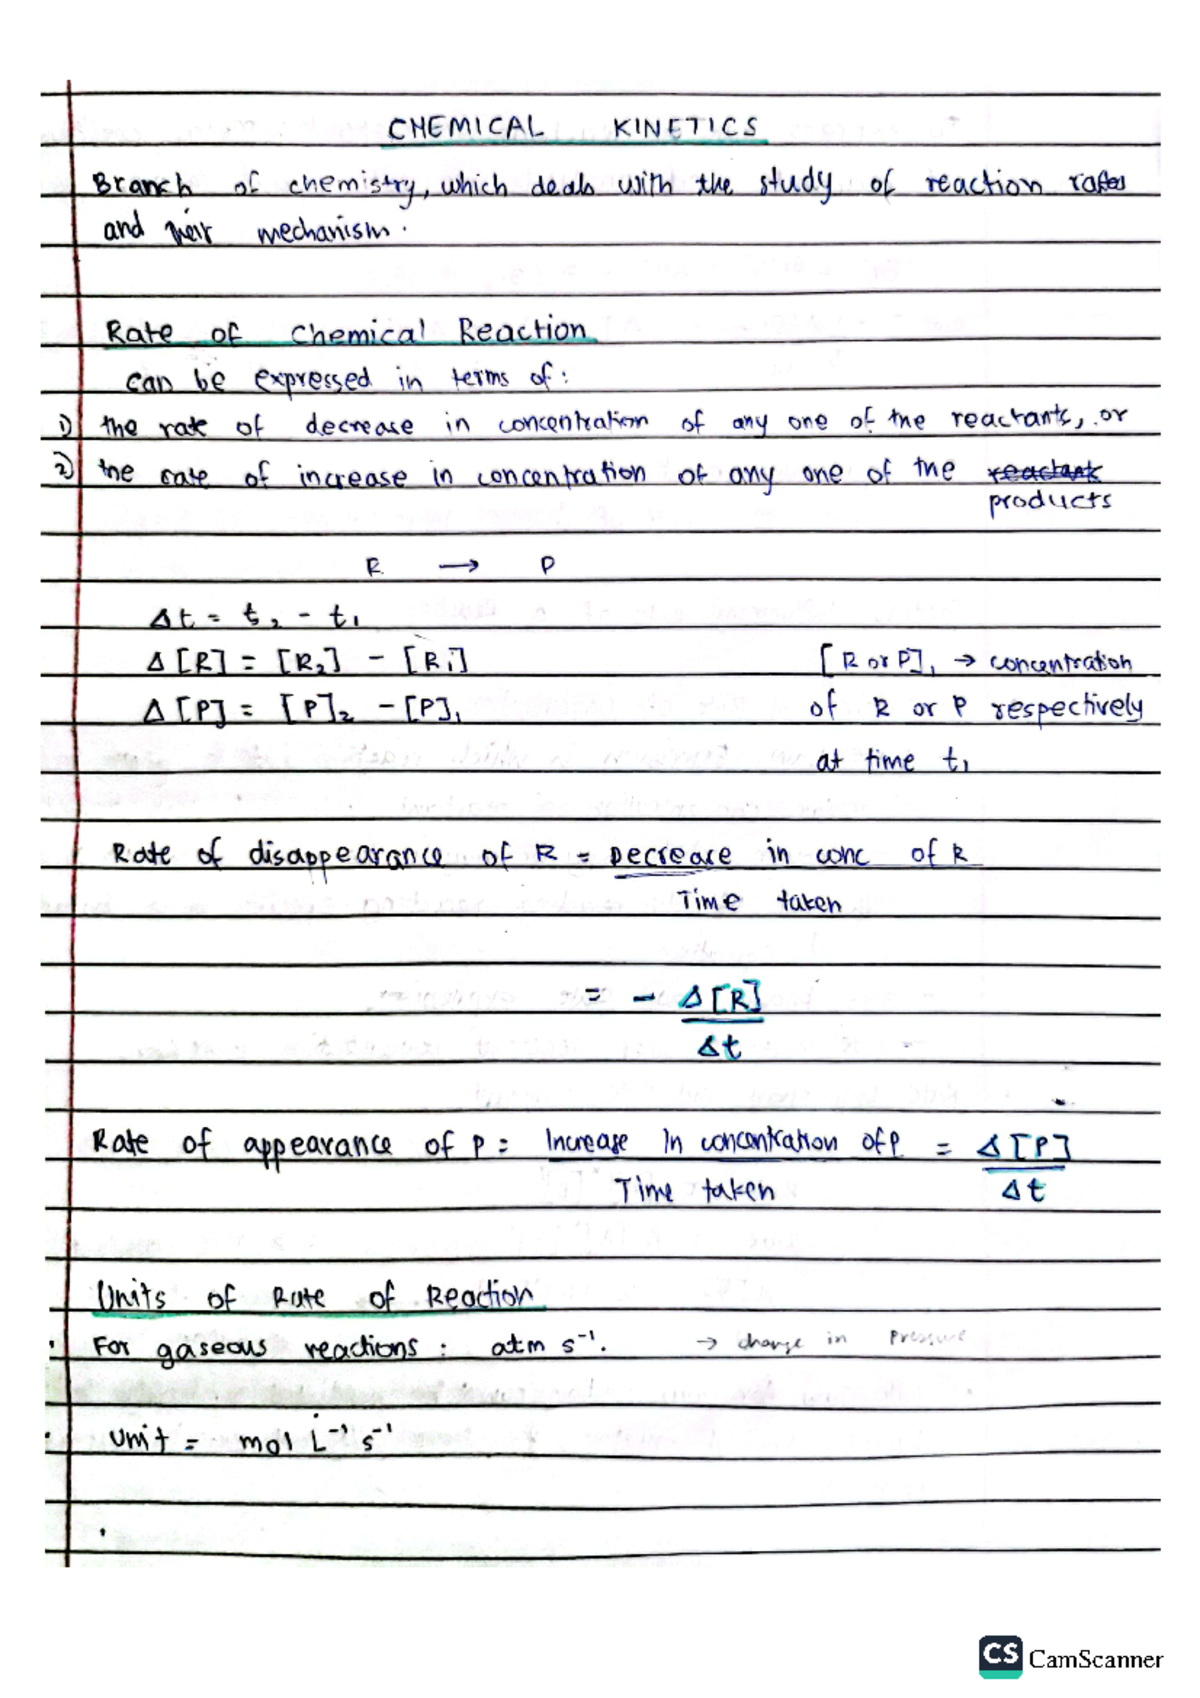 CHEMICAL KINETICS
Branch of chemistry, which deals with the study of reaction rates
and their mechanism.
Rate of Chemical Reaction
can be expressed in terms of:
1) the rate of decrease in concentration of any one of the reactants, or
2) the rate of increase in concentration of any one of the reactants
products
R → P
Δt = t₂ - t₁
Δ[R] = [R₂] - [R₁]
[R or P]₁ → concentration
Δ[P] = [P]₂ - [P]₁
of R or P respectively
at time t₁
Rate of disappearance of R = Decrease in conc of R
Time taken
= - Δ[R]
Δt
Rate of appearance of P = Increase in concentration of P = Δ[P]
Time taken Δt
Units of Rate of Reaction
· For gaseous reactions : atm s⁻¹. → change in pressure
· Unit = mol L⁻¹ s⁻¹
CS CamScanner